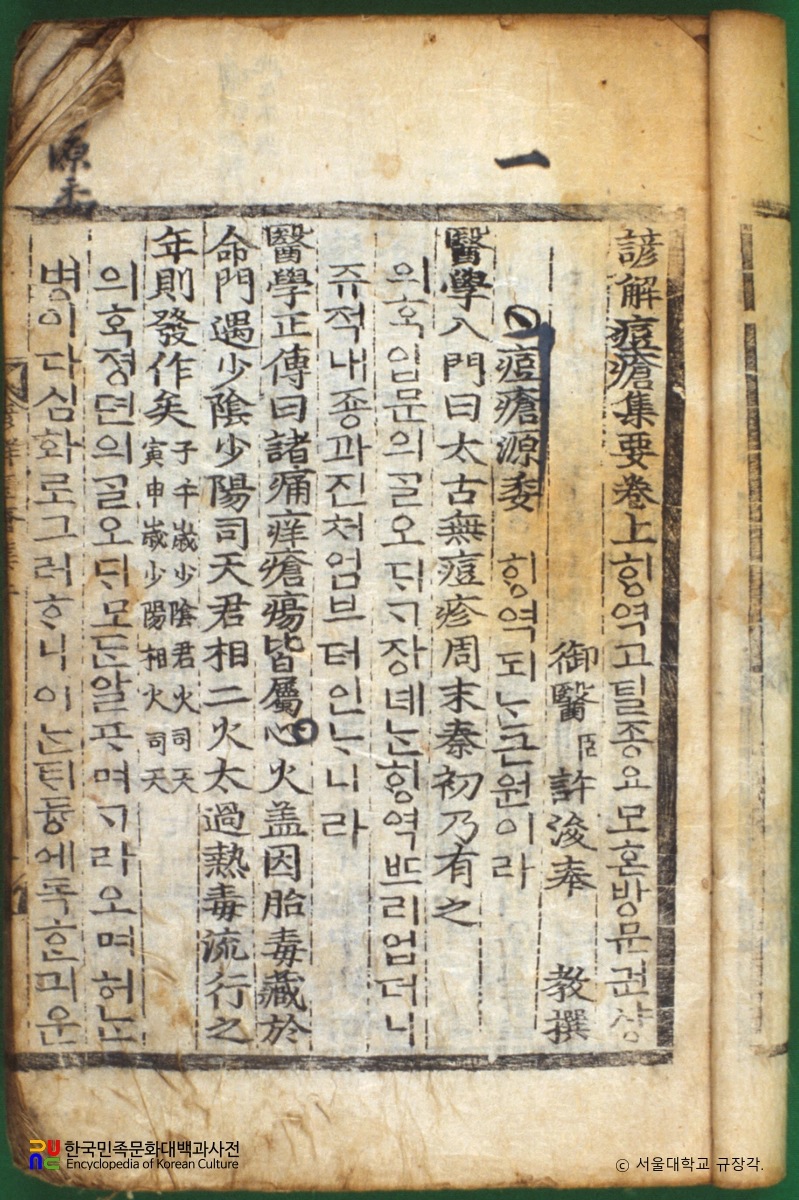 一
諺解痘瘡集要卷上ᄒᆡᆼ역고틸종요모혼방문권샹
御醫臣許浚奉 教撰
痘瘡源委 ᄒᆡᆼ역되ᄂᆞᆫ근원이라
醫學入門曰太古無痘疹周末秦初乃有之
의ᄒᆞᆨ입문의ᄀᆞᆯ오ᄃᆡᄀᆞ장녜ᄂᆞᆫᄒᆡᆼ역ᄲᅳ리업더니
쥬적내죵과진처엄브터인ᄂᆞ니라
醫學正傳曰諸痛痒瘡瘍皆屬心火盖因胎毒藏於
命門遇少陰少陽司天君相二火太過熱毒流行之
年則發作矣子午歲少陰君火司天
寅申歲少陽相火司天
의ᄒᆞᆨ졍뎐의ᄀᆞᆯ오ᄃᆡ모ᄃᆞᆫ알ᄑᆞ며ᄀᆞ라오며허ᄂᆞᆫ
병이다심화로그러ᄒᆞ니이ᄂᆞᆫᄐᆡ듕에독ᄒᆞᆫᄆᆡ운
源委
한국민족문화대백과사전
Encyclopedia of Korean Culture
© 서울대학교 규장각.